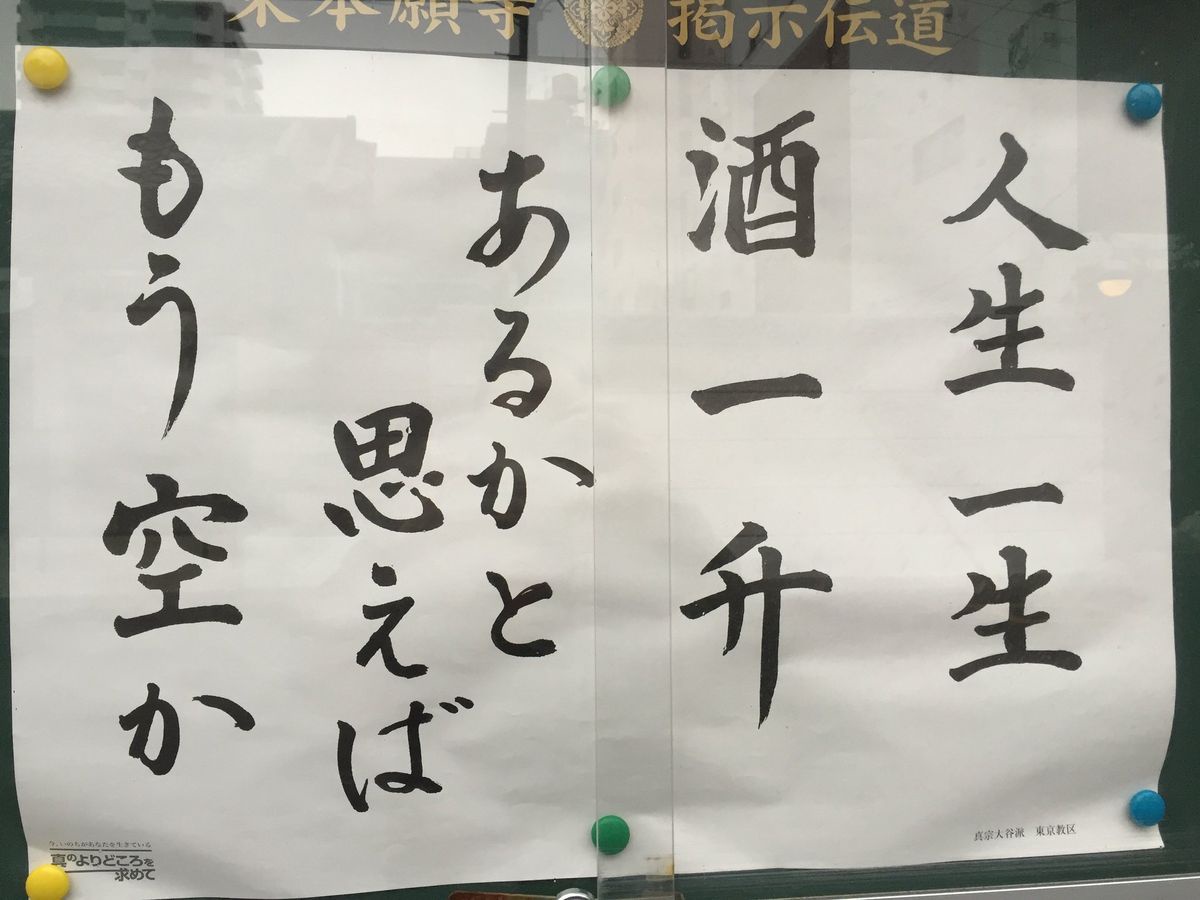 東本願寺 掲示伝道
人生一生
酒一升
あるかと
思えば
もう空か
真宗大谷派 東京教区
今、いのちがあなたを生きている
真のよりどころを
求めて